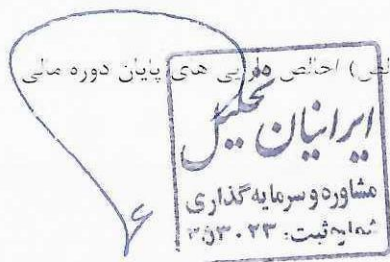 خالص دارایی های پایان دوره مالی
ایرانیان تحلیل
مشاوره و سرمایه گذاری
شماره ثبت: